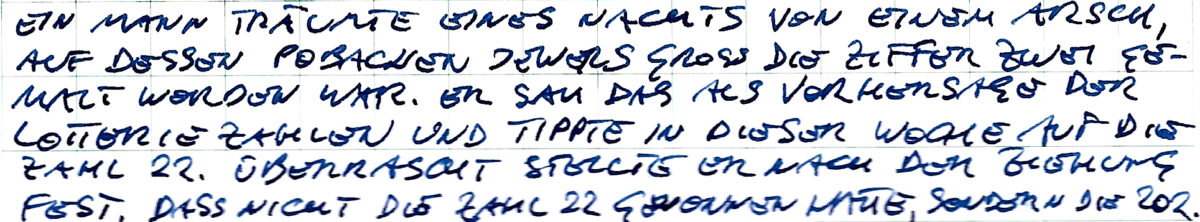 EIN MANN TRÄUMTE EINES NACHTS VON EINEM ARSCH,
AUF DESSEN POBACKEN JEWEILS GROSS DIE ZIFFER ZWEI GE-
MALT WORDEN WAR. ER SAH DAS ALS VORHERSAGE DER
LOTTERIEZAHLEN UND TIPPTE IN DIESER WOCHE AUF DIE
ZAHL 22. ÜBERRASCHT STELLTE ER NACH DER ZIEHUNG
FEST, DASS NICHT DIE ZAHL 22 GEWONNEN HATTE, SONDERN DIE 202